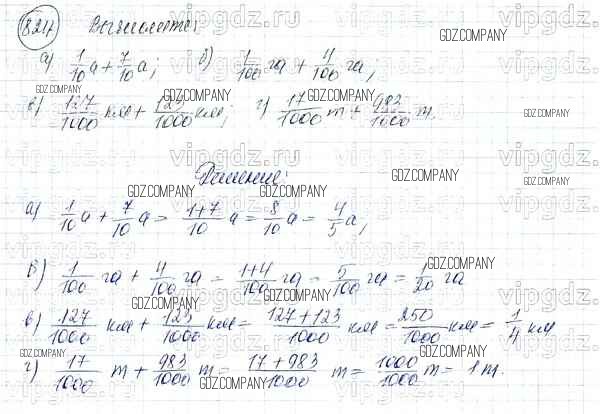 824 Вычислите:
а) 1/10 а + 7/10 а; б) 1/100 га + 4/100 га;
в) 127/1000 км + 123/1000 км; г) 17/1000 т + 983/1000 т.
Решение:
а) 1/10 а + 7/10 а = 1+7/10 а = 8/10 а = 4/5 а;
б) 1/100 га + 4/100 га = 1+4/100 га = 5/100 га = 1/20 га
в) 127/1000 км + 123/1000 км = 127+123/1000 км = 250/1000 км = 1/4 км
г) 17/1000 т + 983/1000 т = 17+983/1000 т = 1000/1000 т = 1 т.
vipgdz.ru
GDZ.COMPANY